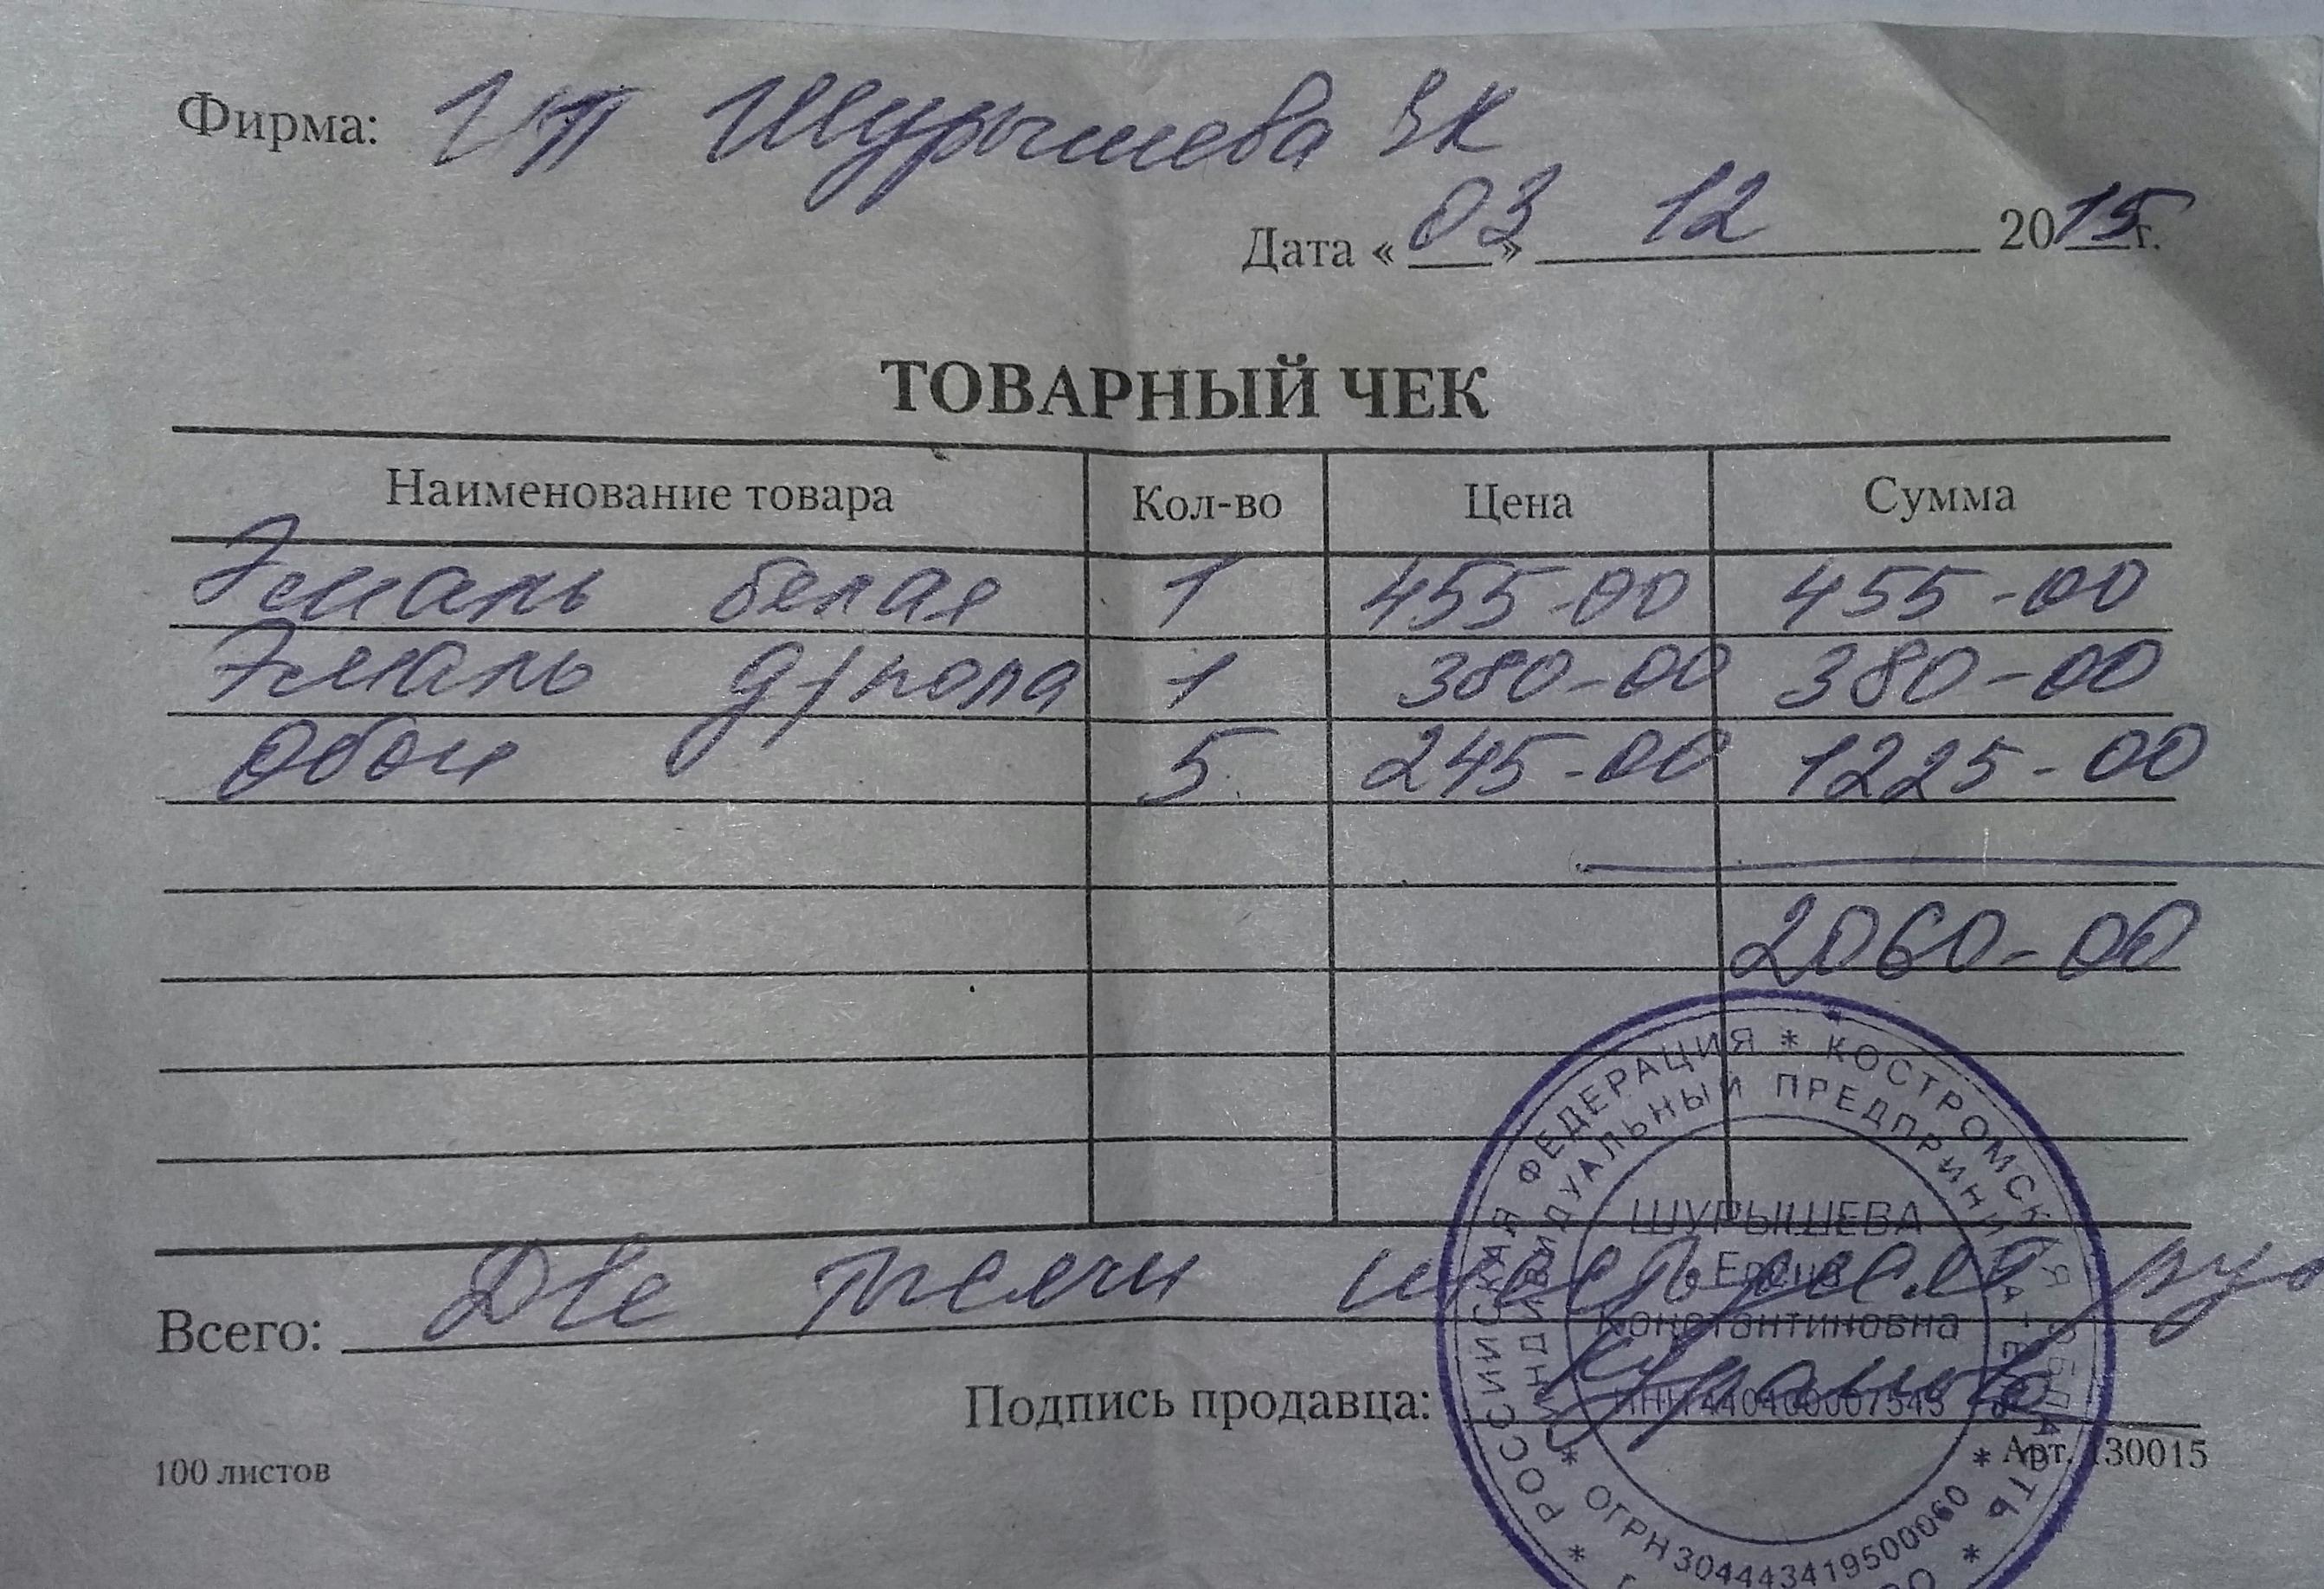 Фирма: ИП Шурышева ЕК
Дата « 03 » 12 2015 г.
ТОВАРНЫЙ ЧЕК
Наименование товара Кол-во Цена Сумма
Эмаль белая 1 455-00 455-00
Эмаль д/пола 1 380-00 380-00
Обои 5 245-00 1225-00
2060-00
Всего: Две тысячи шестьдесят руб
Подпись продавца:
100 листов
Арт. 130015
РОССИЙСКАЯ ФЕДЕРАЦИЯ * КОСТРОМСКАЯ ОБЛАСТЬ *
ИНДИВИДУАЛЬНЫЙ ПРЕДПРИНИМАТЕЛЬ
ШУРЫШЕВА
Константиновна
* ОГРН 304443419500060 *